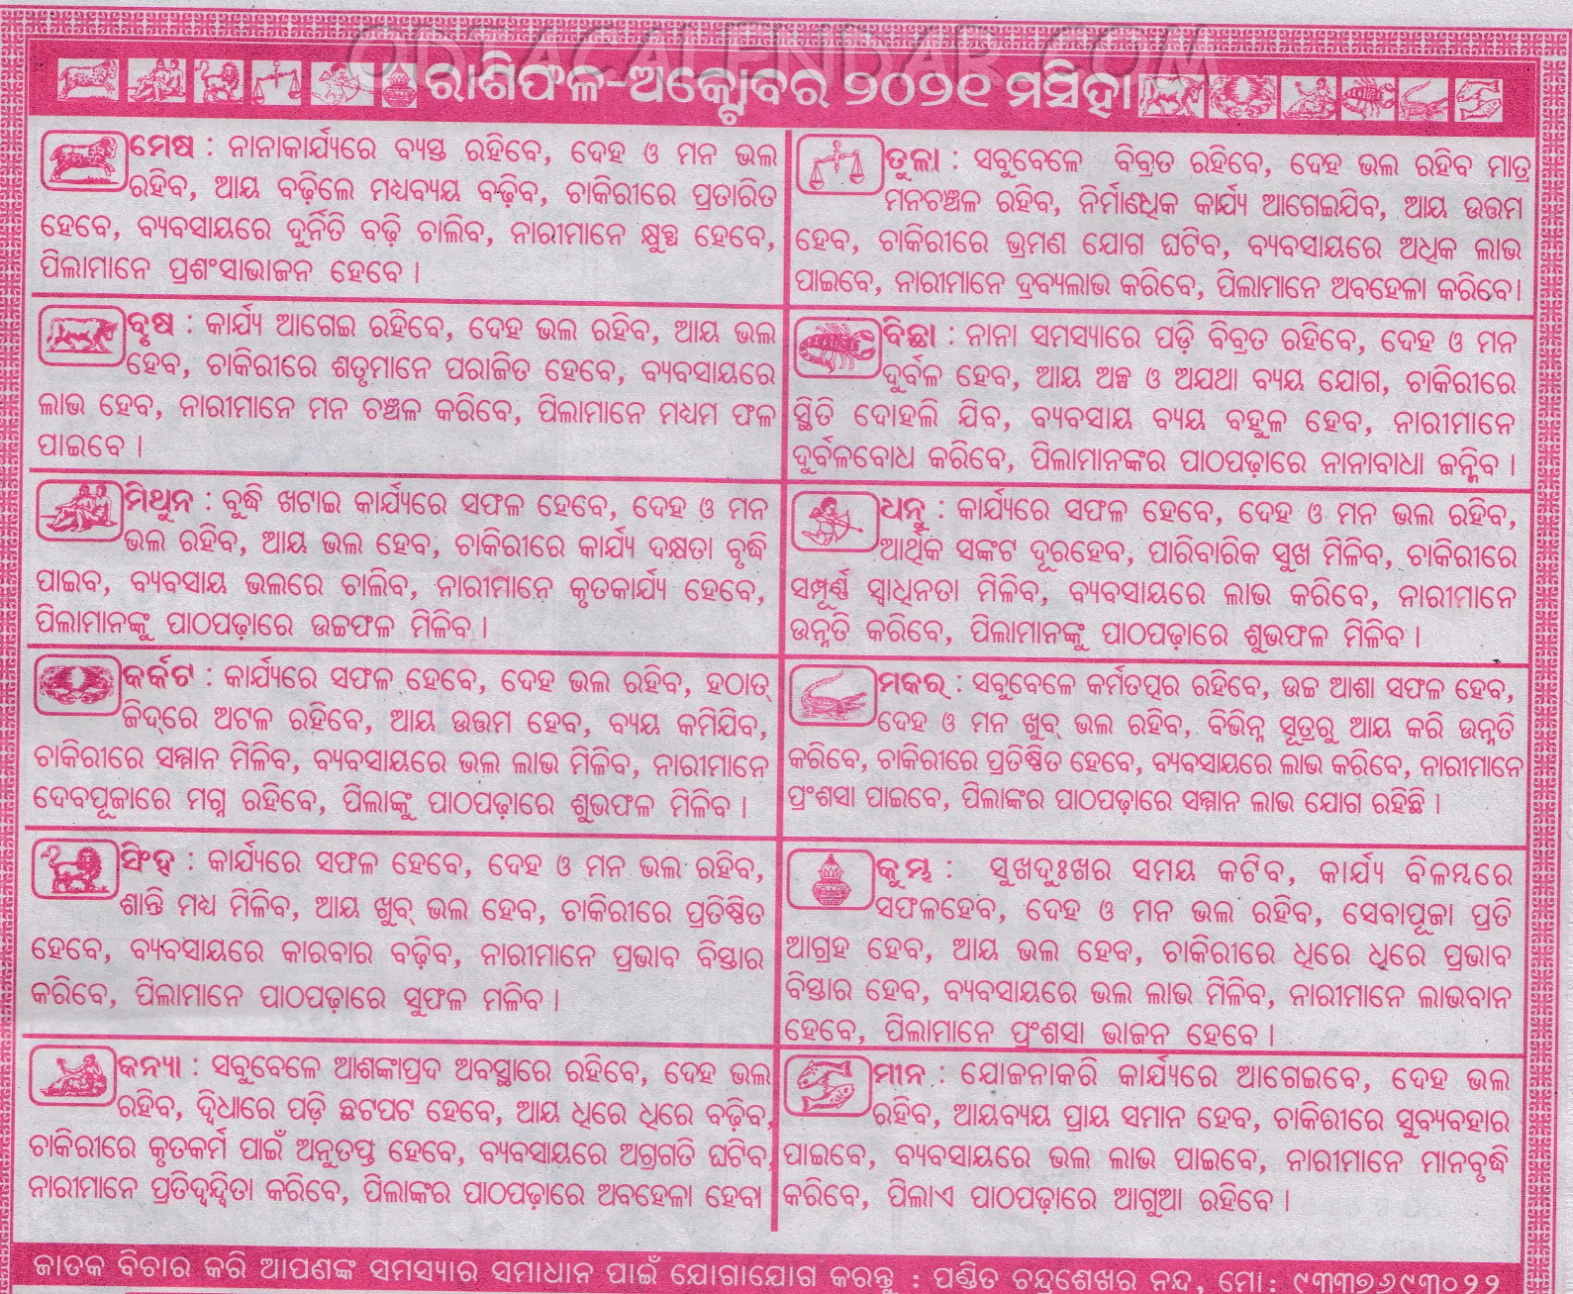 ODIACALENDAR.COM
ରାଶିଫଳ-ଅକ୍ଟୋବର ୨୦୨୧ ମସିହା
ମେଷ : ନାନାକାର୍ଯ୍ୟରେ ବ୍ୟସ୍ତ ରହିବେ, ଦେହ ଓ ମନ ଭଲ
ରହିବ, ଆୟ ବଢ଼ିଲେ ମଧ୍ୟବ୍ୟୟ ବଢ଼ିବ, ଚାକିରୀରେ ପ୍ରତାରିତ
ହେବେ, ବ୍ୟବସାୟରେ ଦୁର୍ନିତି ବଢ଼ି ଚାଲିବ, ନାରୀମାନେ କ୍ଷୁବ୍ଧ ହେବେ,
ପିଲାମାନେ ପ୍ରଶଂସାଭାଜନ ହେବେ।
ବୃଷ : କାର୍ଯ୍ୟ ଆଗେଇ ରହିବେ, ଦେହ ଭଲ ରହିବ, ଆୟ ଭଲ
ହେବ, ଚାକିରୀରେ ଶତୃମାନେ ପରାଜିତ ହେବେ, ବ୍ୟବସାୟରେ
ଲାଭ ହେବ, ନାରୀମାନେ ମନ ଚଞ୍ଚଳ କରିବେ, ପିଲାମାନେ ମଧ୍ୟମ ଫଳ
ପାଇବେ।
ମିଥୁନ : ବୁଦ୍ଧି ଖଟାଇ କାର୍ଯ୍ୟରେ ସଫଳ ହେବେ, ଦେହ ଓ ମନ
ଭଲ ରହିବ, ଆୟ ଭଲ ହେବ, ଚାକିରୀରେ କାର୍ଯ୍ୟ ଦକ୍ଷତା ବୃଦ୍ଧି
ପାଇବ, ବ୍ୟବସାୟ ଭଲରେ ଚାଲିବ, ନାରୀମାନେ କୃତକାର୍ଯ୍ୟ ହେବେ,
ପିଲାମାନଙ୍କୁ ପାଠପଢ଼ାରେ ଉଚ୍ଚଫଳ ମିଳିବ।
କର୍କଟ : କାର୍ଯ୍ୟରେ ସଫଳ ହେବେ, ଦେହ ଭଲ ରହିବ, ହଠାତ୍
ଜିଦ୍‌ରେ ଅଟଳ ରହିବେ, ଆୟ ଉତ୍ତମ ହେବ, ବ୍ୟୟ କମିଯିବ,
ଚାକିରୀରେ ସମ୍ମାନ ମିଳିବ, ବ୍ୟବସାୟରେ ଭଲ ଲାଭ ମିଳିବ, ନାରୀମାନେ
ଦେବପୂଜାରେ ମଗ୍ନ ରହିବେ, ପିଲାଙ୍କୁ ପାଠପଢ଼ାରେ ଶୁଭଫଳ ମିଳିବ।
ସିଂହ : କାର୍ଯ୍ୟରେ ସଫଳ ହେବେ, ଦେହ ଓ ମନ ଭଲ ରହିବ,
ଶାନ୍ତି ମଧ୍ୟ ମିଳିବ, ଆୟ ଖୁବ୍ ଭଲ ହେବ, ଚାକିରୀରେ ପ୍ରତିଷ୍ଠିତ
ହେବେ, ବ୍ୟବସାୟରେ କାରବାର ବଢ଼ିବ, ନାରୀମାନେ ପ୍ରଭାବ ବିସ୍ତାର
କରିବେ, ପିଲାମାନେ ପାଠପଢ଼ାରେ ସୁଫଳ ମଳିବ।
କନ୍ୟା : ସବୁବେଳେ ଆଶଙ୍କାପ୍ରଦ ଅବସ୍ଥାରେ ରହିବେ, ଦେହ ଭଲ
ରହିବ, ଦ୍ୱିଧାରେ ପଡ଼ି ଛଟପଟ ହେବେ, ଆୟ ଧିରେ ଧିରେ ବଢ଼ିବ,
ଚାକିରୀରେ କୃତକର୍ମ ପାଇଁ ଅନୁତପ୍ତ ହେବେ, ବ୍ୟବସାୟରେ ଅଗ୍ରଗତି ଘଟିବ,
ନାରୀମାନେ ପ୍ରତିଦ୍ୱନ୍ଦ୍ୱିତା କରିବେ, ପିଲାଙ୍କର ପାଠପଢ଼ାରେ ଅବହେଳା ହେବ।
ତୁଳା : ସବୁବେଳେ ବିବ୍ରତ ରହିବେ, ଦେହ ଭଲ ରହିବ ମାତ୍ର
ମନଚଞ୍ଚଳ ରହିବ, ନିର୍ମାଣଧିକ କାର୍ଯ୍ୟ ଆଗେଇଯିବ, ଆୟ ଉତ୍ତମ
ହେବ, ଚାକିରୀରେ ଭ୍ରମଣ ଯୋଗ ଘଟିବ, ବ୍ୟବସାୟରେ ଅଧିକ ଲାଭ
ପାଇବେ, ନାରୀମାନେ ଦ୍ରବ୍ୟଲାଭ କରିବେ, ପିଲାମାନେ ଅବହେଳା କରିବେ।
ବିଛା : ନାନା ସମସ୍ୟାରେ ପଡ଼ି ବିବ୍ରତ ରହିବେ, ଦେହ ଓ ମନ
ଦୁର୍ବଳ ହେବ, ଆୟ ଅଳ୍ପ ଓ ଅଯଥା ବ୍ୟୟ ଯୋଗ, ଚାକିରୀରେ
ସ୍ଥିତି ଦୋହଲି ଯିବ, ବ୍ୟବସାୟ ବ୍ୟୟ ବହୁଳ ହେବ, ନାରୀମାନେ
ଦୁର୍ବଳବୋଧ କରିବେ, ପିଲାମାନଙ୍କର ପାଠପଢ଼ାରେ ନାନାବାଧା ଜନ୍ମିବ।
ଧନୁ : କାର୍ଯ୍ୟରେ ସଫଳ ହେବେ, ଦେହ ଓ ମନ ଭଲ ରହିବ,
ଆର୍ଥିକ ସଙ୍କଟ ଦୂରହେବ, ପାରିବାରିକ ସୁଖ ମିଳିବ, ଚାକିରୀରେ
ସମ୍ପୂର୍ଣ୍ଣ ସ୍ୱାଧିନତା ମିଳିବ, ବ୍ୟବସାୟରେ ଲାଭ କରିବେ, ନାରୀମାନେ
ଉନ୍ନତି କରିବେ, ପିଲାମାନଙ୍କୁ ପାଠପଢ଼ାରେ ଶୁଭଫଳ ମିଳିବ।
ମକର : ସବୁବେଳେ କର୍ମତତ୍ପର ରହିବେ, ଉଚ୍ଚ ଆଶା ସଫଳ ହେବ,
ଦେହ ଓ ମନ ଖୁବ୍ ଭଲ ରହିବ, ବିଭିନ୍ନ ସୂତ୍ରରୁ ଆୟ କରି ଉନ୍ନତି
କରିବେ, ଚାକିରୀରେ ପ୍ରତିଷ୍ଠିତ ହେବେ, ବ୍ୟବସାୟରେ ଲାଭ କରିବେ, ନାରୀମାନେ
ପ୍ରଂଶସା ପାଇବେ, ପିଲାଙ୍କର ପାଠପଢ଼ାରେ ସମ୍ମାନ ଲାଭ ଯୋଗ ରହିଛି।
କୁମ୍ଭ : ସୁଖଦୁଃଖର ସମୟ କଟିବ, କାର୍ଯ୍ୟ ବିଳମ୍ବରେ
ସଫଳହେବ, ଦେହ ଓ ମନ ଭଲ ରହିବ, ସେବାପୂଜା ପ୍ରତି
ଆଗ୍ରହ ହେବ, ଆୟ ଭଲ ହେବ, ଚାକିରୀରେ ଧିରେ ଧିରେ ପ୍ରଭାବ
ବିସ୍ତାର ହେବ, ବ୍ୟବସାୟରେ ଭଲ ଲାଭ ମିଳିବ, ନାରୀମାନେ ଲାଭବାନ
ହେବେ, ପିଲାମାନେ ପ୍ରଂଶସା ଭାଜନ ହେବେ।
ମୀନ : ଯୋଜନାକରି କାର୍ଯ୍ୟରେ ଆଗେଇବେ, ଦେହ ଭଲ
ରହିବ, ଆୟବ୍ୟୟ ପ୍ରାୟ ସମାନ ହେବ, ଚାକିରୀରେ ସୁବ୍ୟବହାର
ପାଇବେ, ବ୍ୟବସାୟରେ ଭଲ ଲାଭ ପାଇବେ, ନାରୀମାନେ ମାନବୃଦ୍ଧି
କରିବେ, ପିଲାଏ ପାଠପଢ଼ାରେ ଆଗୁଆ ରହିବେ।
ଜାତକ ବିଚାର କରି ଆପଣଙ୍କ ସମସ୍ୟାର ସମାଧାନ ପାଇଁ ଯୋଗାଯୋଗ କରନ୍ତୁ : ପଣ୍ଡିତ ଚନ୍ଦ୍ରଶେଖର ନନ୍ଦ, ମୋ: ୯୩୩୭୬୯୩୦୨୨